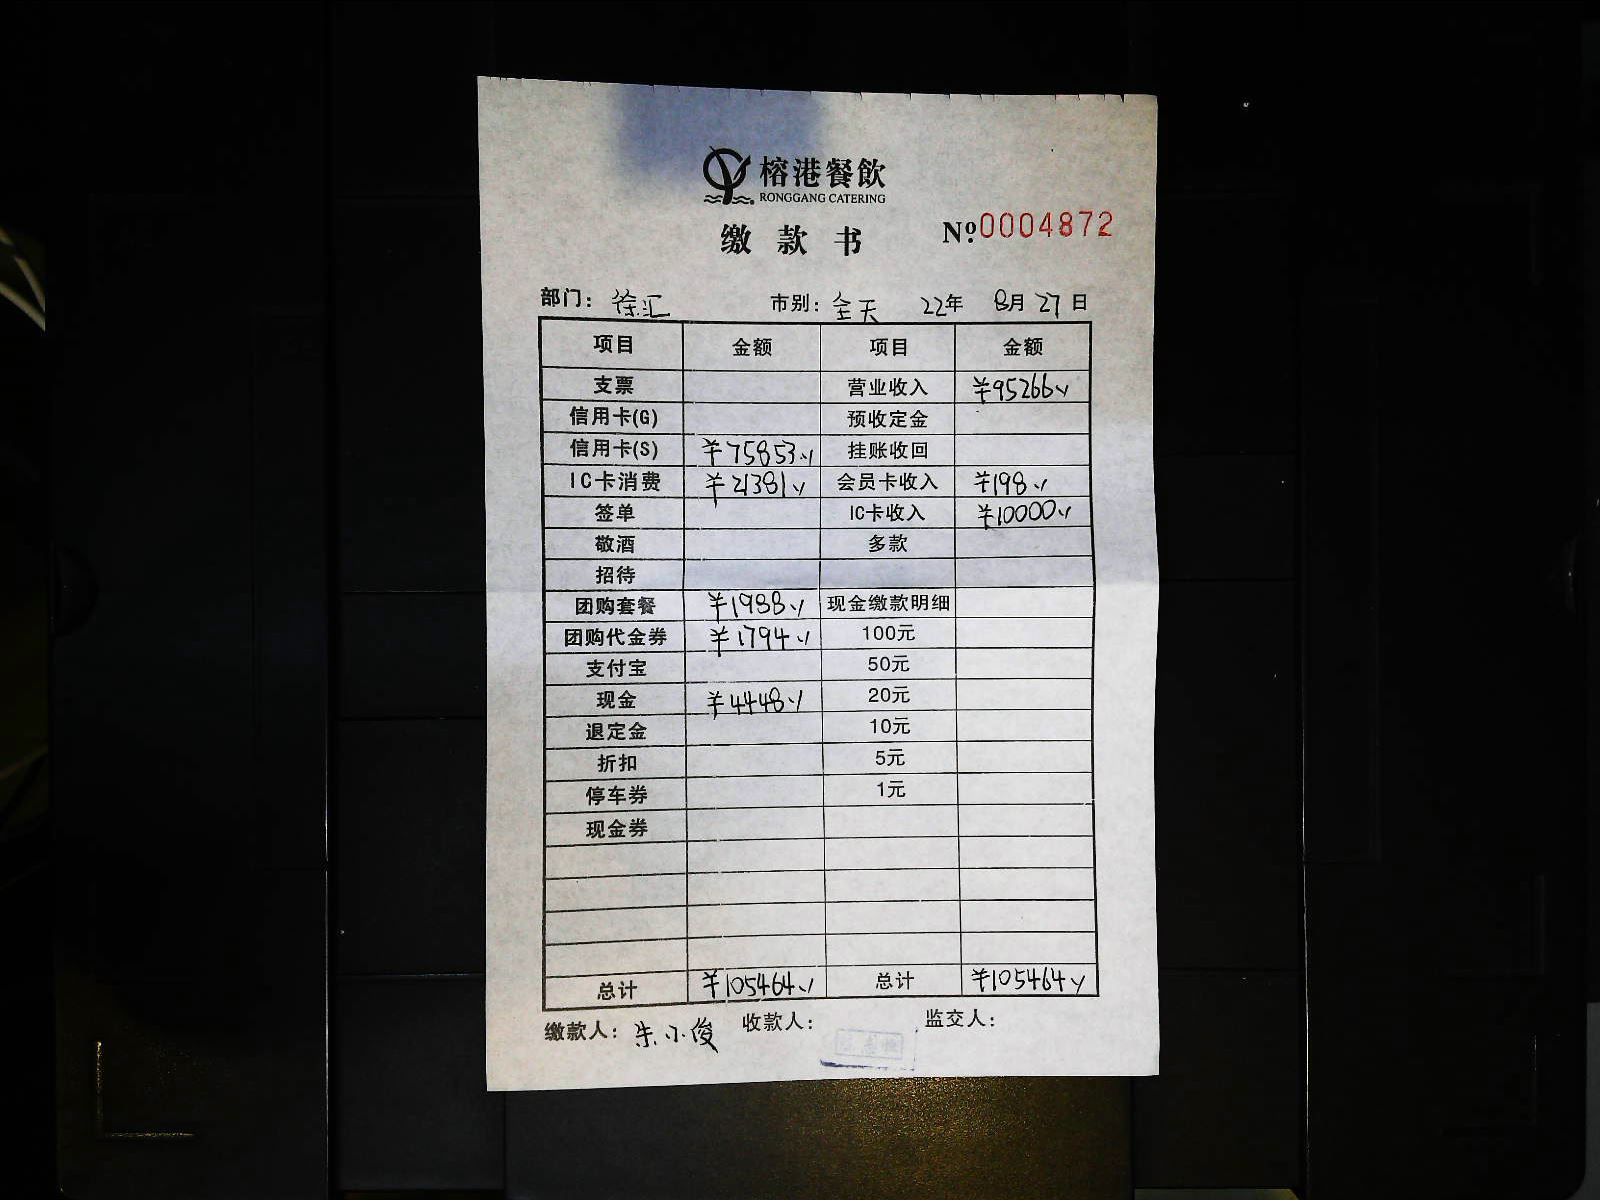 榕港餐飲
RONGGANG CATERING
缴款书 Nº.0004872
部门：徐汇 市别：全天 22年 8月 27日
项目 金额 项目 金额
支票 营业收入 ¥95266
信用卡(G) 预收定金
信用卡(S) ¥75853 挂账收回
IC卡消费 ¥21381 会员卡收入 ¥198
签单 IC卡收入 ¥10000
敬酒 多款
招待
团购套餐 ¥1988 现金缴款明细
团购代金券 ¥1794 100元
支付宝 50元
现金 ¥4448 20元
退定金 10元
折扣 5元
停车券 1元
现金券
总计 ¥105464 总计 ¥105464
缴款人：朱小俊 收款人： 监交人：